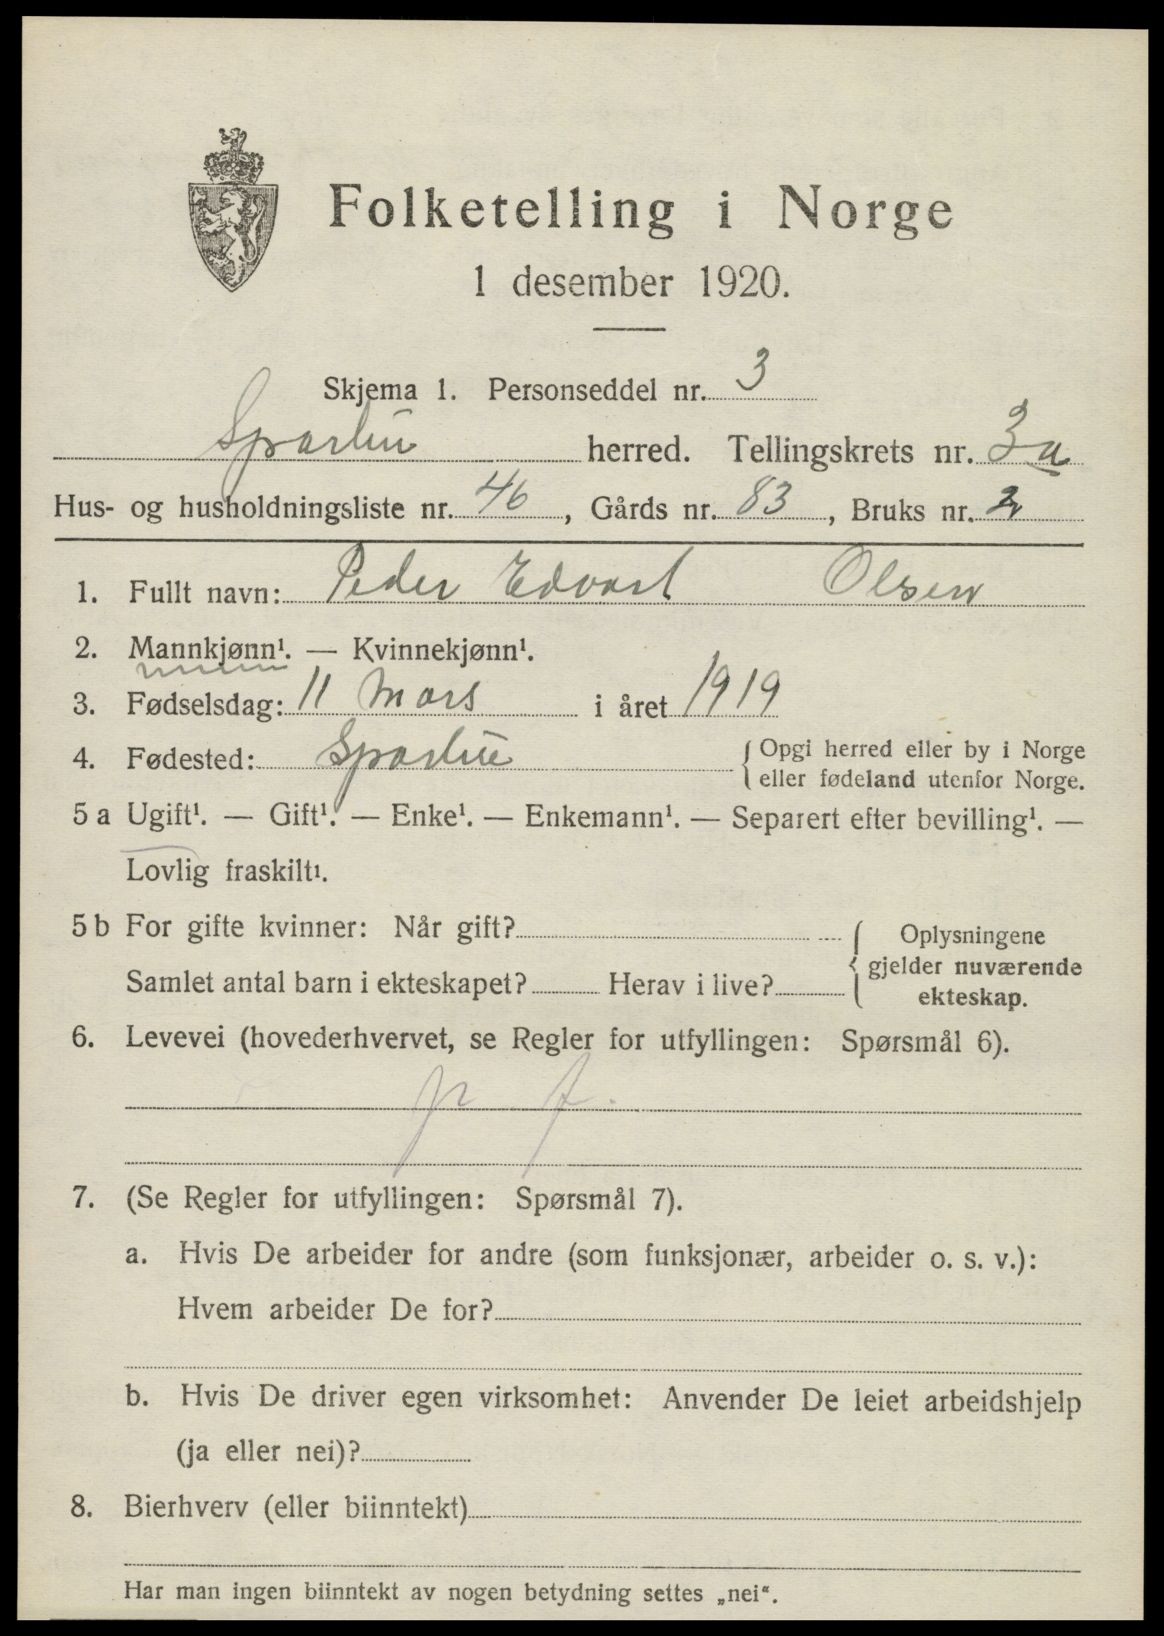 Folketelling i Norge
1 desember 1920.
Skjema 1. Personseddel nr. 3
Sparbu herred. Tellingskrets nr. 3a
Hus- og husholdningsliste nr. 46, Gårds nr. 83, Bruks nr. 2
1. Fullt navn: Peder Edvart Olsen
2. Mannkjønn¹. — Kvinnekjønn¹.
3. Fødselsdag: 11 Mars i året 1919
4. Fødested: Sparbu { Opgi herred eller by i Norge
eller fødeland utenfor Norge.
5 a Ugift¹. — Gift¹. — Enke¹. — Enkemann¹. — Separert efter bevilling¹. —
Lovlig fraskilt¹.
5 b For gifte kvinner: Når gift? { Oplysningene
gjelder nuværende
Samlet antal barn i ekteskapet? Herav i live? ekteskap.
6. Levevei (hovederhvervet, se Regler for utfyllingen: Spørsmål 6).
7. (Se Regler for utfyllingen: Spørsmål 7).
a. Hvis De arbeider for andre (som funksjonær, arbeider o. s. v.):
Hvem arbeider De for?
b. Hvis De driver egen virksomhet: Anvender De leiet arbeidshjelp
(ja eller nei)?
8. Bierhverv (eller biinntekt)
Har man ingen biinntekt av nogen betydning settes „nei“.